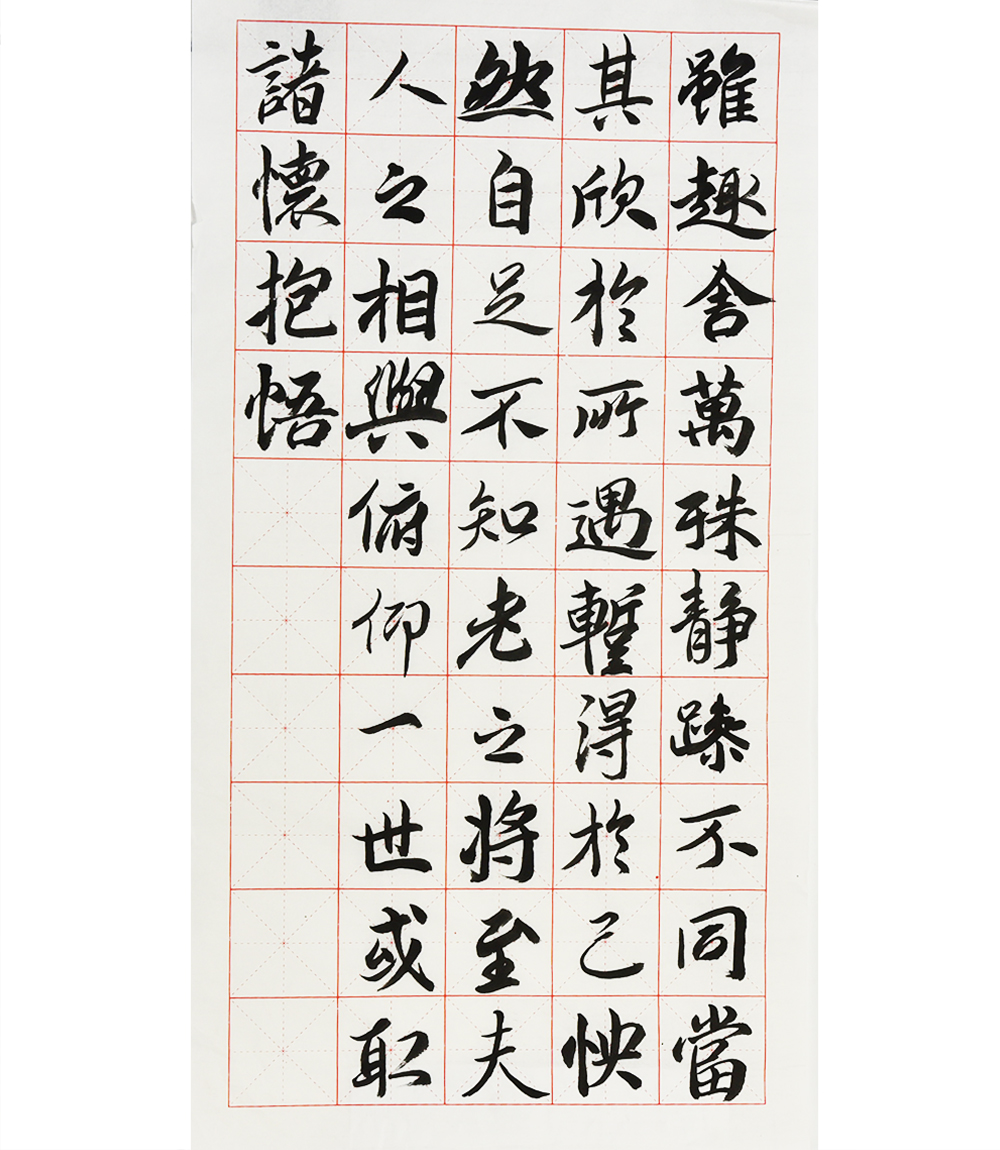 雖趣舍萬殊静躁不同當
其欣於所遇蹔得於己怏
然自足不知老之將至夫
人之相與俯仰一世或取
諸懷抱悟